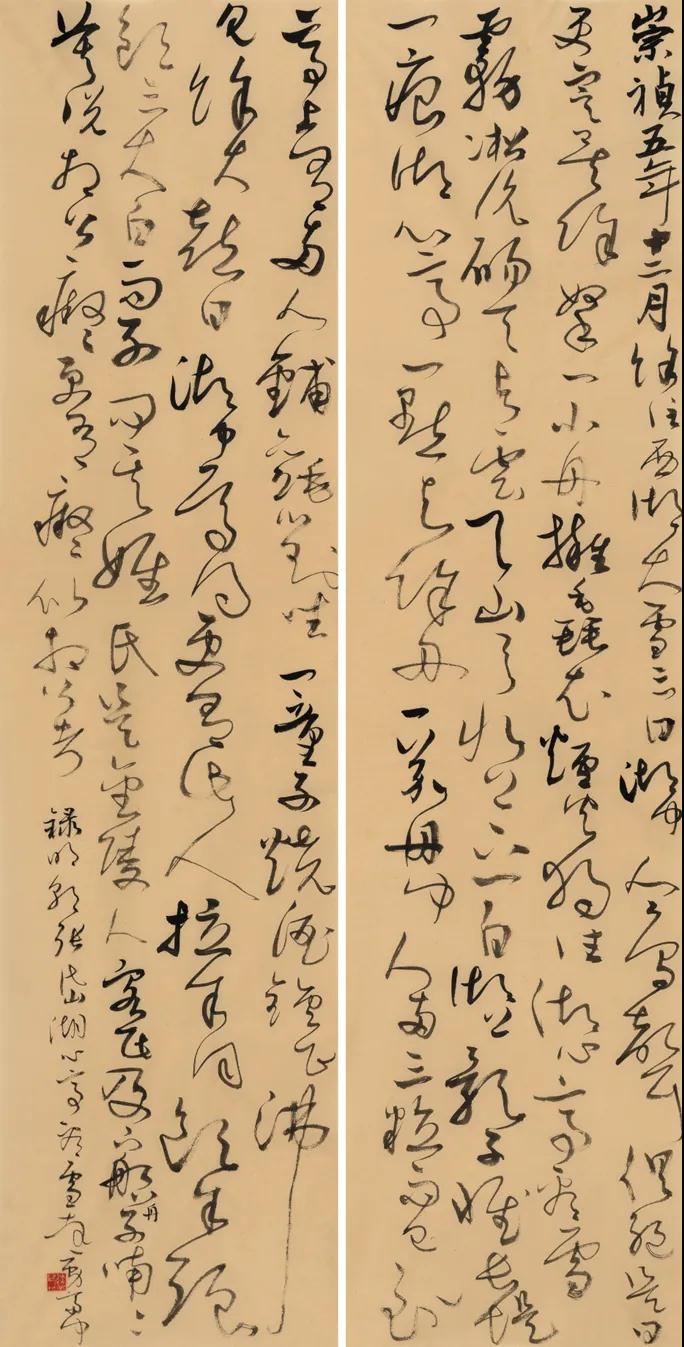 崇禎五年十二月餘住西湖大雪三日湖中人鳥聲俱絕是日
更定矣餘拏一小舟擁毳衣爐火獨往湖心亭看雪
霧凇沆碭天與雲與山與水上下一白湖上影子惟長堤
一痕湖心亭一點與餘舟一芥舟中人兩三粒而已到
亭上有兩人鋪氈對坐一童子燒酒爐正沸
見餘大喜曰湖中焉得更有此人拉餘同飲餘強
飲三大白而別問其姓氏是金陵人客此及下船舟子喃喃
莫說相公癡更有癡似相公者 錄明朝張岱湖心亭看雪